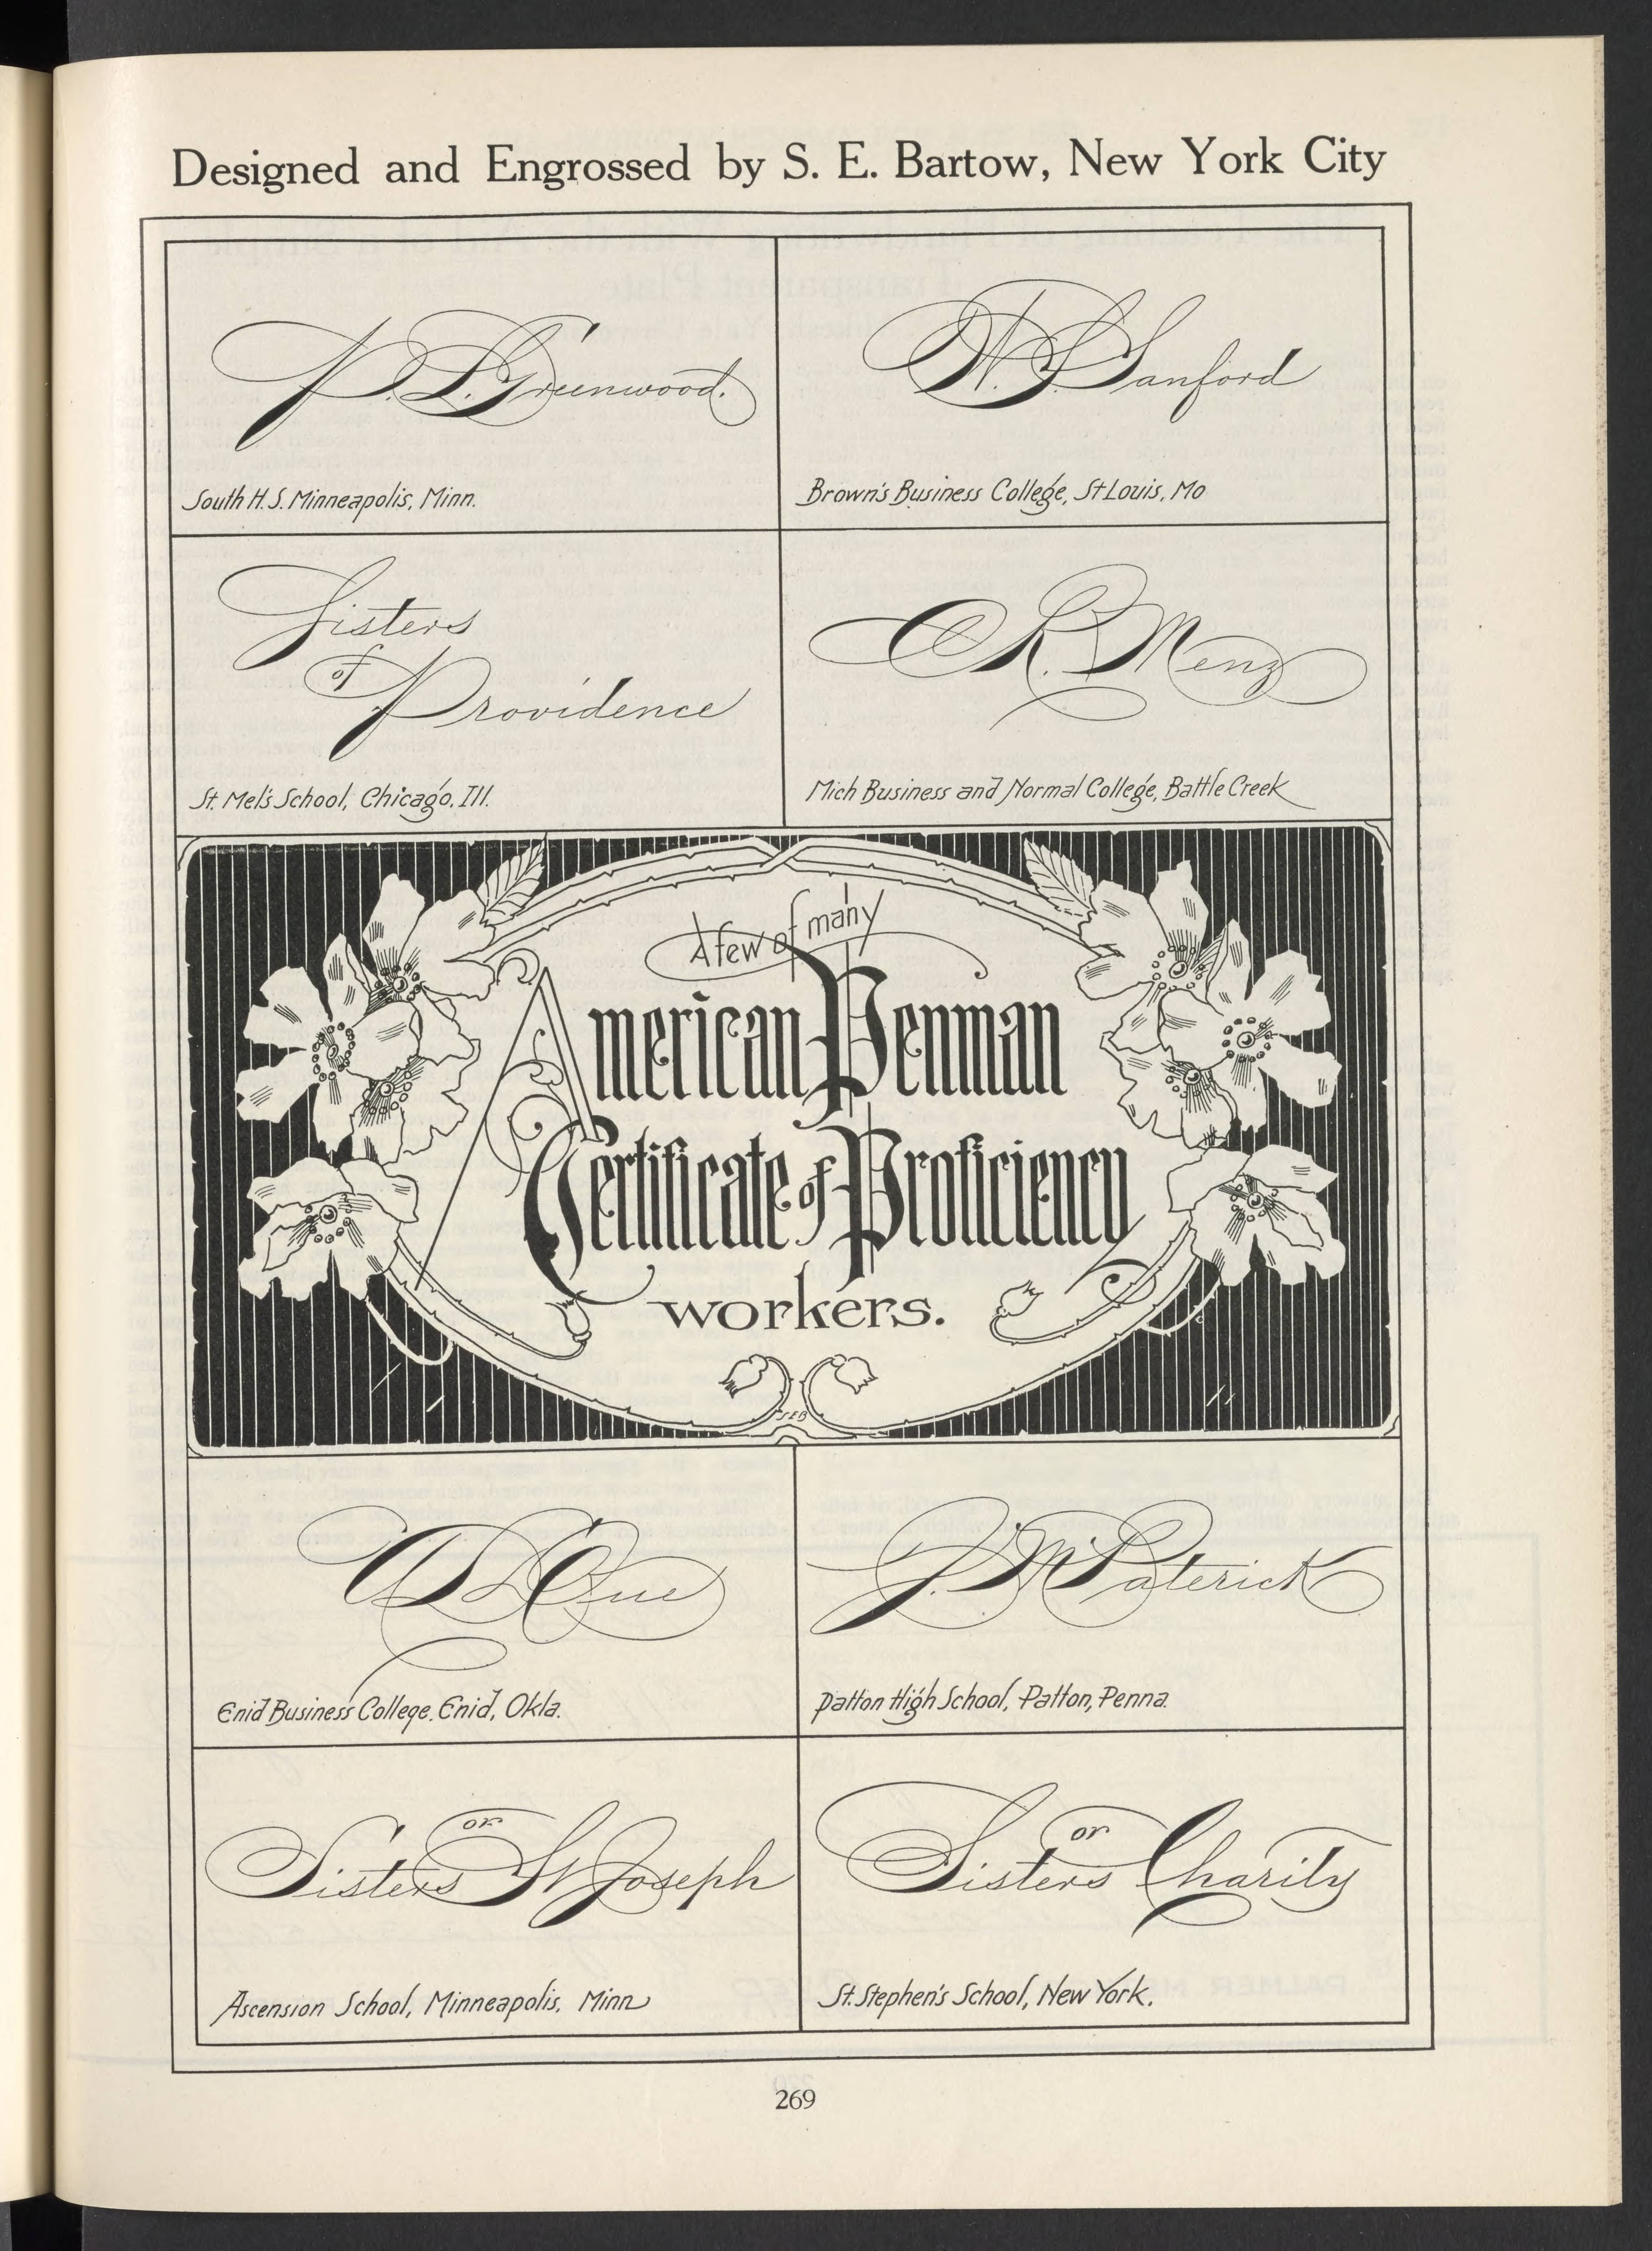 Designed and Engrossed by S. E. Bartow, New York City
P. L. Greenwood.
South H. S. Minneapolis, Minn.
W. S. Sanford
Brown's Business College, St Louis, Mo
Sisters
of
Providence
St. Mel's School, Chicago, Ill.
C R. Menz
Mich Business and Normal College, Battle Creek
A few of many
American Penman
Certificate of Proficiency
workers.
SEB
Enid Business College, Enid, Okla.
Patton High School, Patton, Penna.
Sisters of St Joseph
Ascension School, Minneapolis, Minn
Sisters of Charity
St. Stephen's School, New York.
269